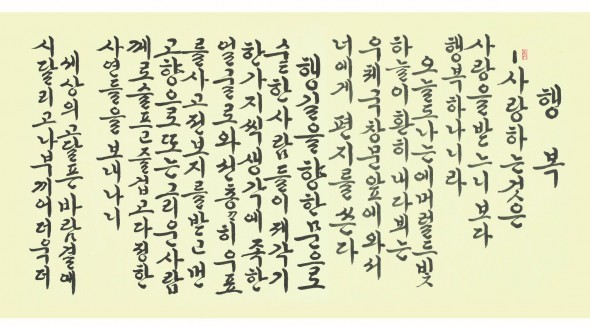 행복
-사랑하는 것은
사랑을 받느니보다
행복하나니라
오늘도 나는 에머럴드빛
하늘이 환히 내다뵈는
우체국 창문 앞에 와서
너에게 편지를 쓴다
행길을 향한 문으로
숱한 사람들이 제각기
한가지씩 생각에 족한
얼굴로 와선 총총히 우표
를 사고 전보지를 받고 먼
고향으로 또는 그리운 사람
께로 슬프고 즐겁고 다정한
사연들을 보내나니
세상의 고달픈 바람결에
시달리고 나부끼어 더욱 더